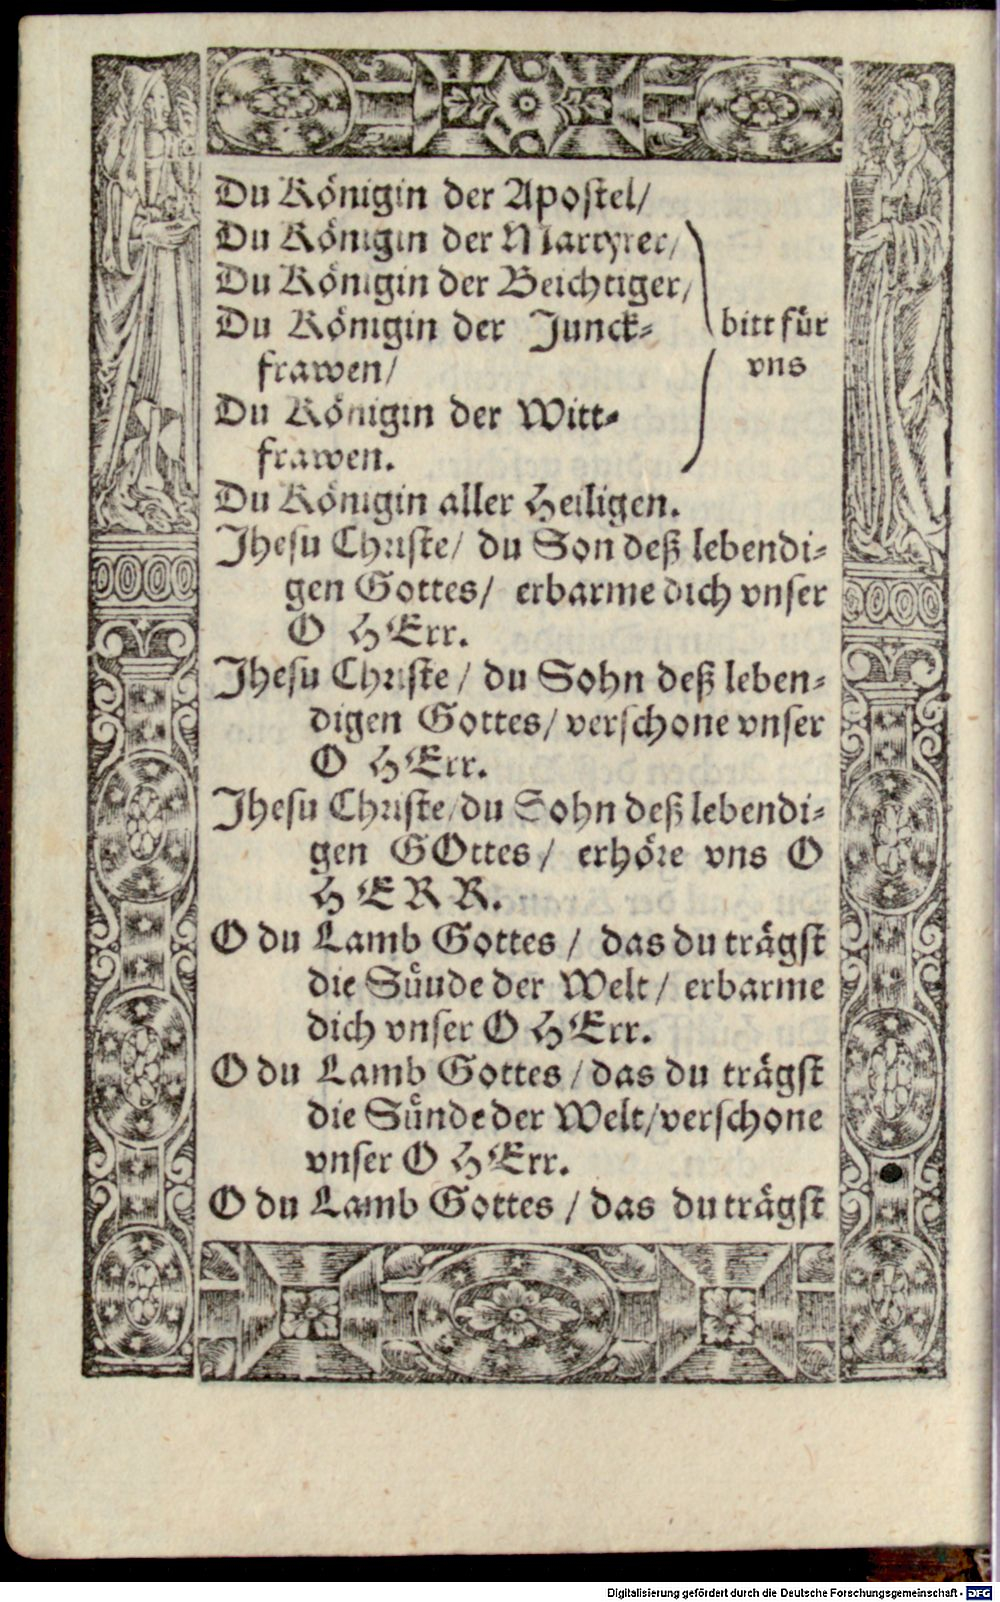 Du Königin der Apostel/
Du Königin der Martyrer/
Du Königin der Beichtiger/
Du Königin der Junck⸗
frawen/
bitt für
vns
Du Königin der Witt⸗
frawen.
Du Königin aller Heiligen.
Jhesu Christe/ du Son deß lebendi⸗
gen Gottes/ erbarme dich vnser
O HErr.
Jhesu Christe/ du Sohn deß leben⸗
digen Gottes/ verschone vnser
O HErr.
Jhesu Christe/du Sohn deß lebendi⸗
gen GOttes/ erhöre vns O
HERR.
O du Lamb Gottes/ das du trägst
die Süude der Welt/ erbarme
dich vnser O HErr.
O du Lamb Gottes/das du trägst
die Sünde der Welt/verschone
vnser O HErr.
O du Lamb Gottes/das du trägst
Digitalisierung gefördert durch die Deutsche Forschungsgemeinschaft - DFG